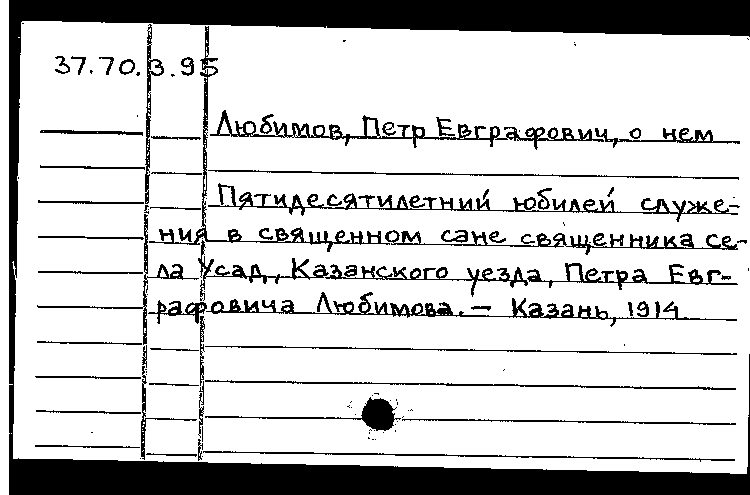 37.70.3.95
Любимов, Петр Евграфович, о нем
Пятидесятилетний юбилей служе-
ния в священном сане священника се-
ла Усад, Казанского уезда, Петра Евг-
рафовича Любимова. — Казань, 1914